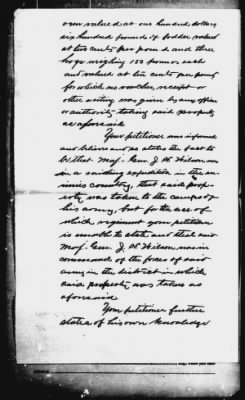 corn valued at one hundred dollars
six hundred pounds of fodder valued
at two cents per pound and three
hogs weighing 150 pounds each
and valued at ten cents per pound
for which no voucher, receipt or
other writing was given by any officer
or authority taking said property
as aforesaid
Your petitioner was informed
and believes and so states the fact to
be that Maj. Gen J H Wilson, was
in a raiding expedition in the en-
emies country, that said prop-
erty was taken to the camps of
his army, but for the use of
which regiment your petitioner
is unable to state and that said
Maj. Gen J H Wilson, was in
command of the forces of said
army in the district in which
said property was taken as
aforesaid
Your petitioner further
states of his own knowledge